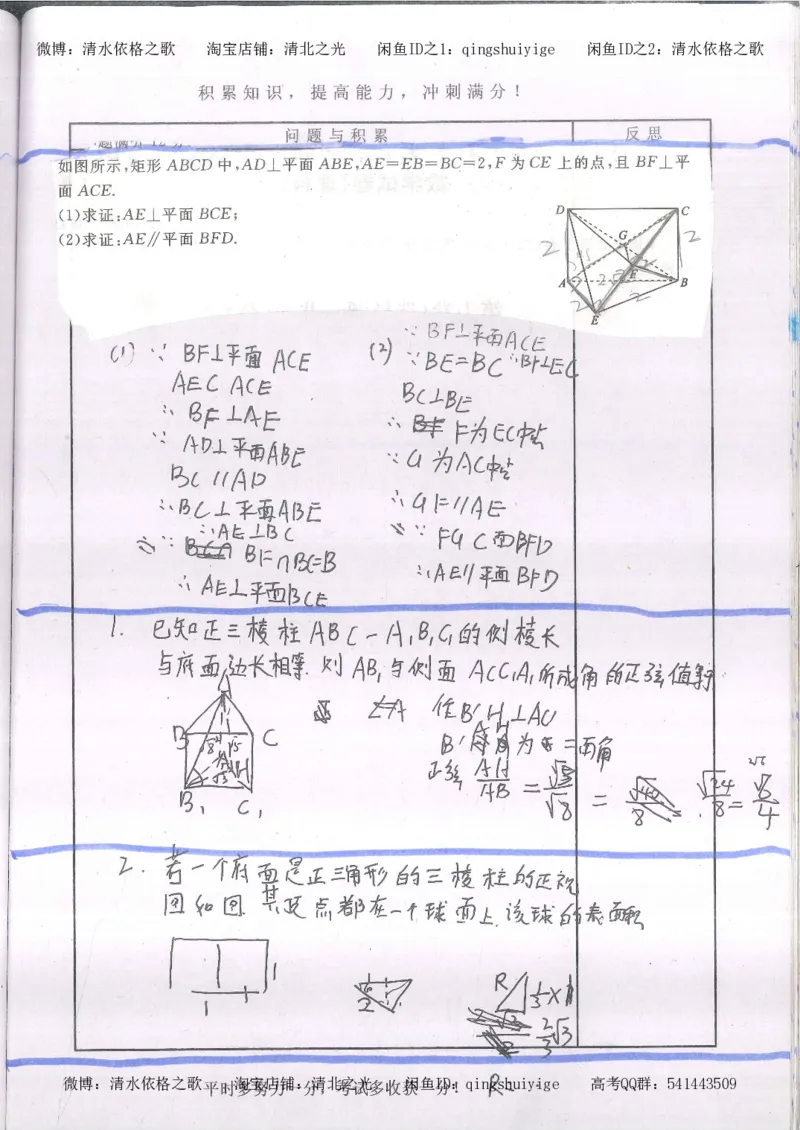 微博：清水依格之歌 淘宝店铺：清北之光 闲鱼ID之1：qingshuiyige 闲鱼ID之2：清水依格之歌
积累知识，提高能力，冲刺满分！
问题与积累 反思
如图所示,矩形 ABCD 中,AD⊥平面 ABE,AE=EB=BC=2,F 为 CE 上的点,且 BF⊥平
面 ACE.
(1)求证:AE⊥平面 BCE;
(2)求证:AE∥平面 BFD.
D C
G
2 2
F
A B
2 2
E
(1) ∵ BF⊥平面 ACE
AE⊂ ACE
∴ BF⊥AE
∵ AD⊥平面ABE
BC∥AD
∴ BC⊥平面ABE
∴ AE⊥BC
∵ BF∩BC=B
∴ AE⊥平面BCE
∵ BF⊥平面ACE
(2) ∵ BE=BC ∵BF⊥EC
BC⊥BE
∴ F为EC中点
∵ G为AC中点
∴ GF∥AE
∵ FG⊂面BFD
∴ AE∥平面BFD
1. 已知正三棱柱ABC-A₁B₁C₁的侧棱长
与底面边长相等.则AB₁与侧面ACC₁A₁所成角的正弦值等
B C
B₁ C₁
作B'H⊥AC
为 二面角
正弦 AH/AB = /√8 = √24/8 = √6/4
2. 若一个底面是正三角形的三棱柱的正视
图如图 其顶点都在一个球面上.该球的表面积
1
1 1
2
R
2/3√3
R=
平时多努力一分，考试多收获一分！
微博：清水依格之歌 淘宝店铺：清北之光 闲鱼ID：qingshuiyige 高考QQ群：541443509